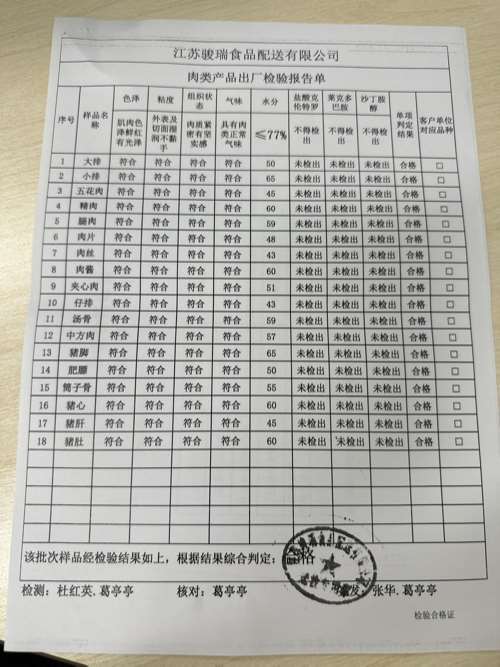 江苏骏瑞食品配送有限公司
肉类产品出厂检验报告单
序号 样品名称 色泽 粘度 组织状态 气味 水分 盐酸克伦特罗 莱克多巴胺 沙丁胺醇 单项判定结果 客户单位对应品种
肌肉色泽鲜红有光泽 外表及切面湿润不黏手 肉质紧密有坚实感 具有肉类正常气味 ≤77% 不得检出 不得检出 不得检出
1 大排 符合 符合 符合 符合 50 未检出 未检出 未检出 合格 □
2 小排 符合 符合 符合 符合 65 未检出 未检出 未检出 合格 □
3 五花肉 符合 符合 符合 符合 45 未检出 未检出 未检出 合格 □
4 精肉 符合 符合 符合 符合 60 未检出 未检出 未检出 合格 □
5 腿肉 符合 符合 符合 符合 59 未检出 未检出 未检出 合格 □
6 肉片 符合 符合 符合 符合 48 未检出 未检出 未检出 合格 □
7 肉丝 符合 符合 符合 符合 43 未检出 未检出 未检出 合格 □
8 肉酱 符合 符合 符合 符合 60 未检出 未检出 未检出 合格 □
9 夹心肉 符合 符合 符合 符合 51 未检出 未检出 未检出 合格 □
10 仔排 符合 符合 符合 符合 43 未检出 未检出 未检出 合格 □
11 汤骨 符合 符合 符合 符合 59 未检出 未检出 未检出 合格 □
12 中方肉 符合 符合 符合 符合 57 未检出 未检出 未检出 合格 □
13 猪脚 符合 符合 符合 符合 65 未检出 未检出 未检出 合格 □
14 肥膘 符合 符合 符合 符合 50 未检出 未检出 未检出 合格 □
15 筒子骨 符合 符合 符合 符合 55 未检出 未检出 未检出 合格 □
16 猪心 符合 符合 符合 符合 60 未检出 未检出 未检出 合格 □
17 猪肝 符合 符合 符合 符合 45 未检出 未检出 未检出 合格 □
18 猪肚 符合 符合 符合 符合 60 未检出 未检出 未检出 合格 □
该批次样品经检验结果如上，根据结果综合判定： 格
检测：杜红英.葛亭亭 核对：葛亭亭 发：张华.葛亭亭
检验合格证